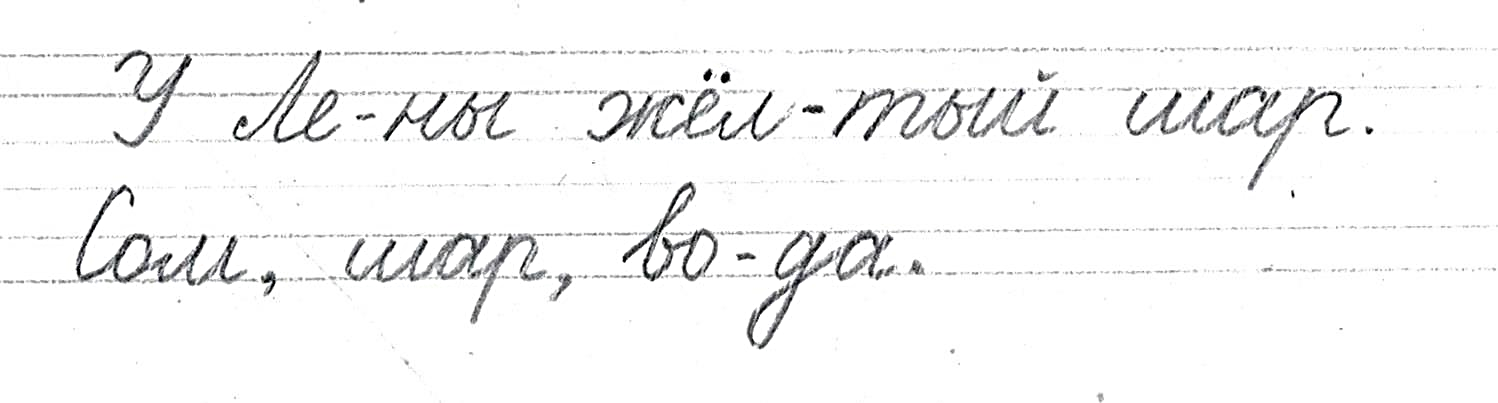 У Ле-ны жёл-тый шар.
Сом, шар, во-да.